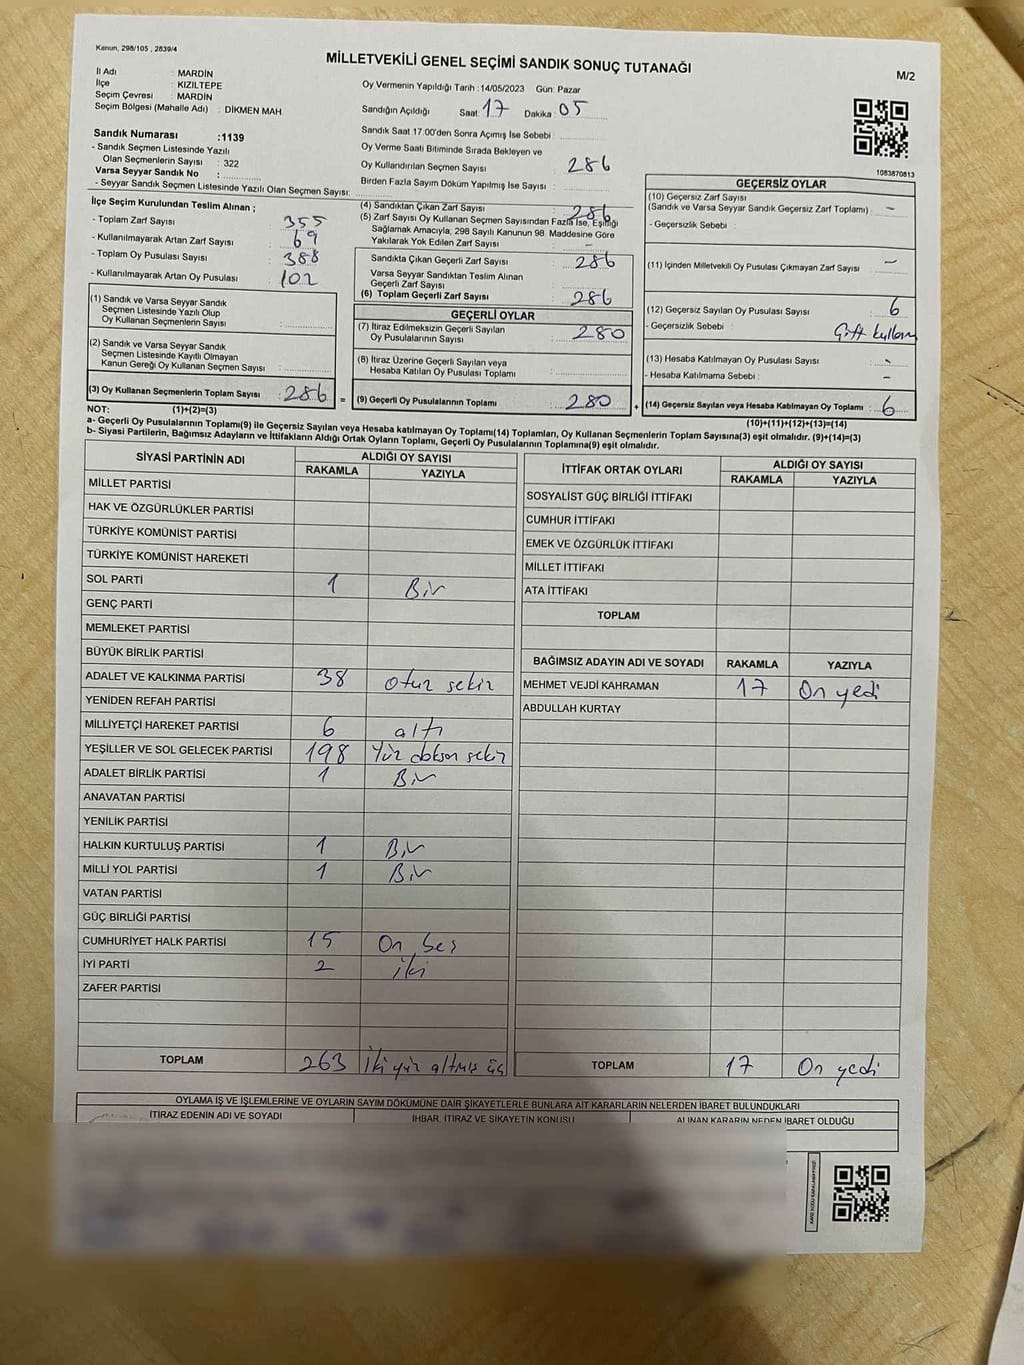 Kanun, 298/105 , 2839/4
MİLLETVEKİLİ GENEL SEÇİMİ SANDIK SONUÇ TUTANAĞI
M/2
İl Adı : MARDİN
İlçe : KIZILTEPE
Seçim Çevresi : MARDİN
Seçim Bölgesi (Mahalle Adı) : DİKMEN MAH.
Oy Vermenin Yapıldığı Tarih :14/05/2023 Gün: Pazar
Sandığın Açıldığı Saat: 17 Dakika: 05
Sandık Saat 17:00'den Sonra Açımış İse Sebebi :
Oy Verme Saati Bitiminde Sırada Bekleyen ve
Oy Kullandırılan Seçmen Sayısı : 286
Birden Fazla Sayım Döküm Yapılmış İse Sayısı :
1083870813
Sandık Numarası :1139
- Sandık Seçmen Listesinde Yazılı
Olan Seçmenlerin Sayısı : 322
Varsa Seyyar Sandık No :
- Seyyar Sandık Seçmen Listesinde Yazılı Olan Seçmen Sayısı:
İlçe Seçim Kurulundan Teslim Alınan ;
- Toplam Zarf Sayısı : 355
- Kullanılmayarak Artan Zarf Sayısı : 69
- Toplam Oy Pusulası Sayısı : 388
- Kullanılmayarak Artan Oy Pusulası : 102
(1) Sandık ve Varsa Seyyar Sandık
Seçmen Listesinde Yazılı Olup
Oy Kullanan Seçmenlerin Sayısı :
(2) Sandık ve Varsa Seyyar Sandık
Seçmen Listesinde Kayıtlı Olmayan
Kanun Gereği Oy Kullanan Seçmen Sayısı :
(3) Oy Kullanan Seçmenlerin Toplam Sayısı : 286 =
(4) Sandıktan Çıkan Zarf Sayısı : 286
(5) Zarf Sayısı Oy Kullanan Seçmen Sayısından Fazla İse, Eşitliği
Sağlamak Amacıyla; 298 Sayılı Kanunun 98. Maddesine Göre
Yakılarak Yok Edilen Zarf Sayısı : -
Sandıkta Çıkan Geçerli Zarf Sayısı : 286
Varsa Seyyar Sandıktan Teslim Alınan
Geçerli Zarf Sayısı :
(6) Toplam Geçerli Zarf Sayısı : 286
GEÇERLİ OYLAR
(7) İtiraz Edilmeksizin Geçerli Sayılan
Oy Pusulalarının Sayısı : 280
(8) İtiraz Üzerine Geçerli Sayılan veya
Hesaba Katılan Oy Pusulası Toplamı :
(9) Geçerli Oy Pusulalarının Toplamı : 280 +
GEÇERSİZ OYLAR
(10) Geçersiz Zarf Sayısı
(Sandık ve Varsa Seyyar Sandık Geçersiz Zarf Toplamı) : -
- Geçersizlik Sebebi :
(11) İçinden Milletvekili Oy Pusulası Çıkmayan Zarf Sayısı : -
(12) Geçersiz Sayılan Oy Pusulası Sayısı : 6
- Geçersizlik Sebebi : Çift kullanım
(13) Hesaba Katılmayan Oy Pusulası Sayısı : -
- Hesaba Katılmama Sebebi : -
(14) Geçersiz Sayılan veya Hesaba Katılmayan Oy Toplamı : 6
NOT: (1)+(2)=(3)
(10)+(11)+(12)+(13)=(14)
a- Geçerli Oy Pusulalarının Toplamı(9) ile Geçersiz Sayılan veya Hesaba katılmayan Oy Toplamı(14) Toplamları, Oy Kullanan Seçmenlerin Toplam Sayısına(3) eşit olmalıdır. (9)+(14)=(3)
b- Siyasi Partilerin, Bağımsız Adayların ve İttifakların Aldığı Ortak Oyların Toplamı, Geçerli Oy Pusulalarının Toplamına(9) eşit olmalıdır.
SİYASİ PARTİNİN ADI ALDIĞI OY SAYISI
RAKAMLA YAZIYLA
MİLLET PARTİSİ
HAK VE ÖZGÜRLÜKLER PARTİSİ
TÜRKİYE KOMÜNİST PARTİSİ
TÜRKİYE KOMÜNİST HAREKETİ
SOL PARTİ 1 Bir
GENÇ PARTİ
MEMLEKET PARTİSİ
BÜYÜK BİRLİK PARTİSİ
ADALET VE KALKINMA PARTİSİ 38 otuz sekiz
YENİDEN REFAH PARTİSİ
MİLLİYETÇİ HAREKET PARTİSİ 6 altı
YEŞİLLER VE SOL GELECEK PARTİSİ 198 Yüz doksan sekiz
ADALET BİRLİK PARTİSİ 1 Bir
ANAVATAN PARTİSİ
YENİLİK PARTİSİ
HALKIN KURTULUŞ PARTİSİ 1 Bir
MİLLİ YOL PARTİSİ 1 Bir
VATAN PARTİSİ
GÜÇ BİRLİĞİ PARTİSİ
CUMHURİYET HALK PARTİSİ 15 On beş
İYİ PARTİ 2 iki
ZAFER PARTİSİ
TOPLAM 263 İki yüz altmış üç
İTTİFAK ORTAK OYLARI ALDIĞI OY SAYISI
RAKAMLA YAZIYLA
SOSYALİST GÜÇ BİRLİĞİ İTTİFAKI
CUMHUR İTTİFAKI
EMEK VE ÖZGÜRLÜK İTTİFAKI
MİLLET İTTİFAKI
ATA İTTİFAKI
TOPLAM
BAĞIMSIZ ADAYIN ADI VE SOYADI RAKAMLA YAZIYLA
MEHMET VEJDİ KAHRAMAN 17 On yedi
ABDULLAH KURTAY
TOPLAM 17 On yedi
OYLAMA İŞ VE İŞLEMLERİNE VE OYLARIN SAYIM DÖKÜMÜNE DAİR ŞİKAYETLERLE BUNLARA AİT KARARLARIN NELERDEN İBARET BULUNDUKLARI
İTİRAZ EDENİN ADI VE SOYADI İHBAR, İTİRAZ VE ŞİKAYETİN KONUSU ALINAN KARARIN NEDEN İBARET OLDUĞU